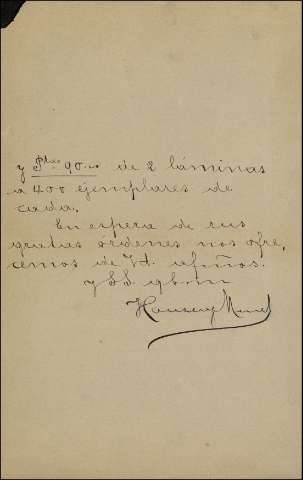 y Ptas 90.-- de 2 láminas
a 400 ejemplares de
cada.
En espera de sus
gratas órdenes nos ofre,
cemos de Vd. afmos.
y SS. q b s m
Hauser y Menet